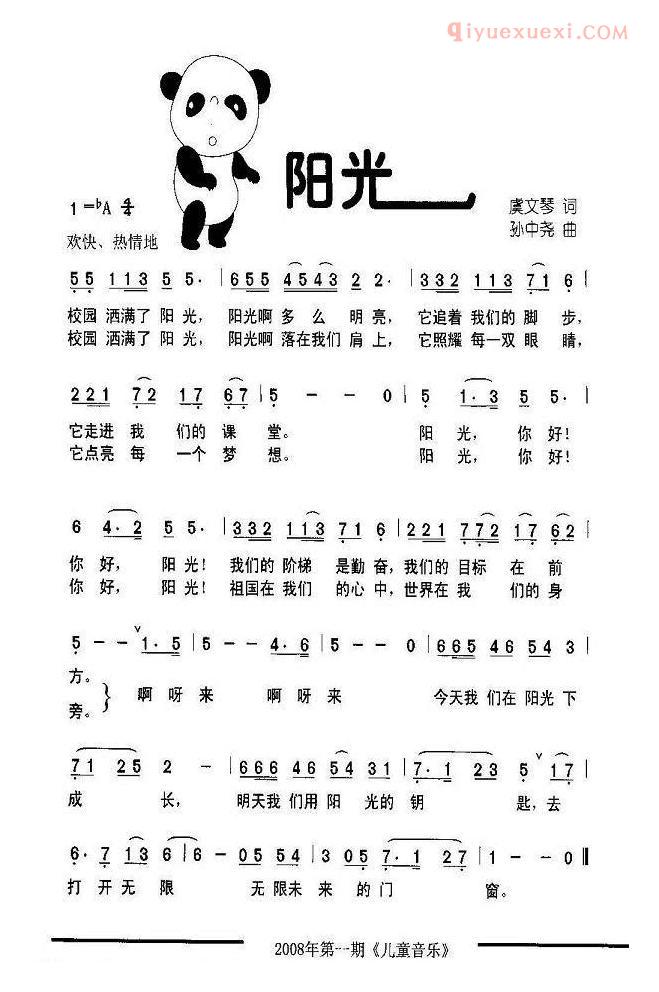 qiyuexuexi.com
阳光
1=♭A 4/4
虞文琴 词
欢快、热情地
孙中尧 曲
5 5 1 1 3 5 5· | 6 5 5 4 5 4 3 2 2· | 3 3 2 1 1 3 7 1 6 |
校园 洒满了 阳 光， 阳光啊 多 么 明 亮， 它追着 我们的 脚 步，
校园 洒满了 阳 光， 阳光啊 落在我们 肩 上， 它照耀 每一双 眼 睛，
2 2 1 7 2 1 7 6 7 | 5 – – 0 | 5 1· 3 5 5· |
它走进 我 们的 课 堂。 阳 光， 你 好！
它点亮 每 一个 梦 想。 阳 光， 你 好！
6 4· 2 5 5· | 3 3 2 1 1 3 7 1 6 | 2 2 1 7 7 2 1 7 6 2 |
你 好， 阳 光！ 我们的 阶梯 是勤 奋，我们的 目标 在 前
你 好， 阳 光！ 祖国在 我们 的心 中，世界在 我 们的 身
5 – – ∨ 1· 5 | 5 – – 4· 6 | 5 – – 0 | 6 6 5 4 6 5 4 3 |
方。
啊 呀 来 啊 呀 来 今天我 们在 阳光 下
旁。
7 1 2 5 2 – | 6 6 6 4 6 5 4 3 1 | 7· 1 2 3 5 ∨ 1 7 |
成 长， 明天我 们用 阳 光的 钥 匙，去
6· 7 1 3 6 | 6 – 0 5 5 4 | 3 0 5 7· 1 2 7 | 1 – – 0 ‖
打 开 无 限 无 限未 来 的 门 窗。
2008年第一期《儿童音乐》